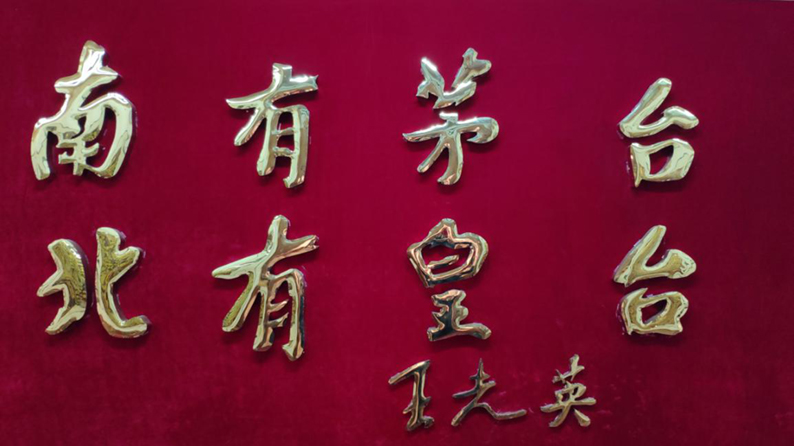 南有茅台
北有皇台
王光英